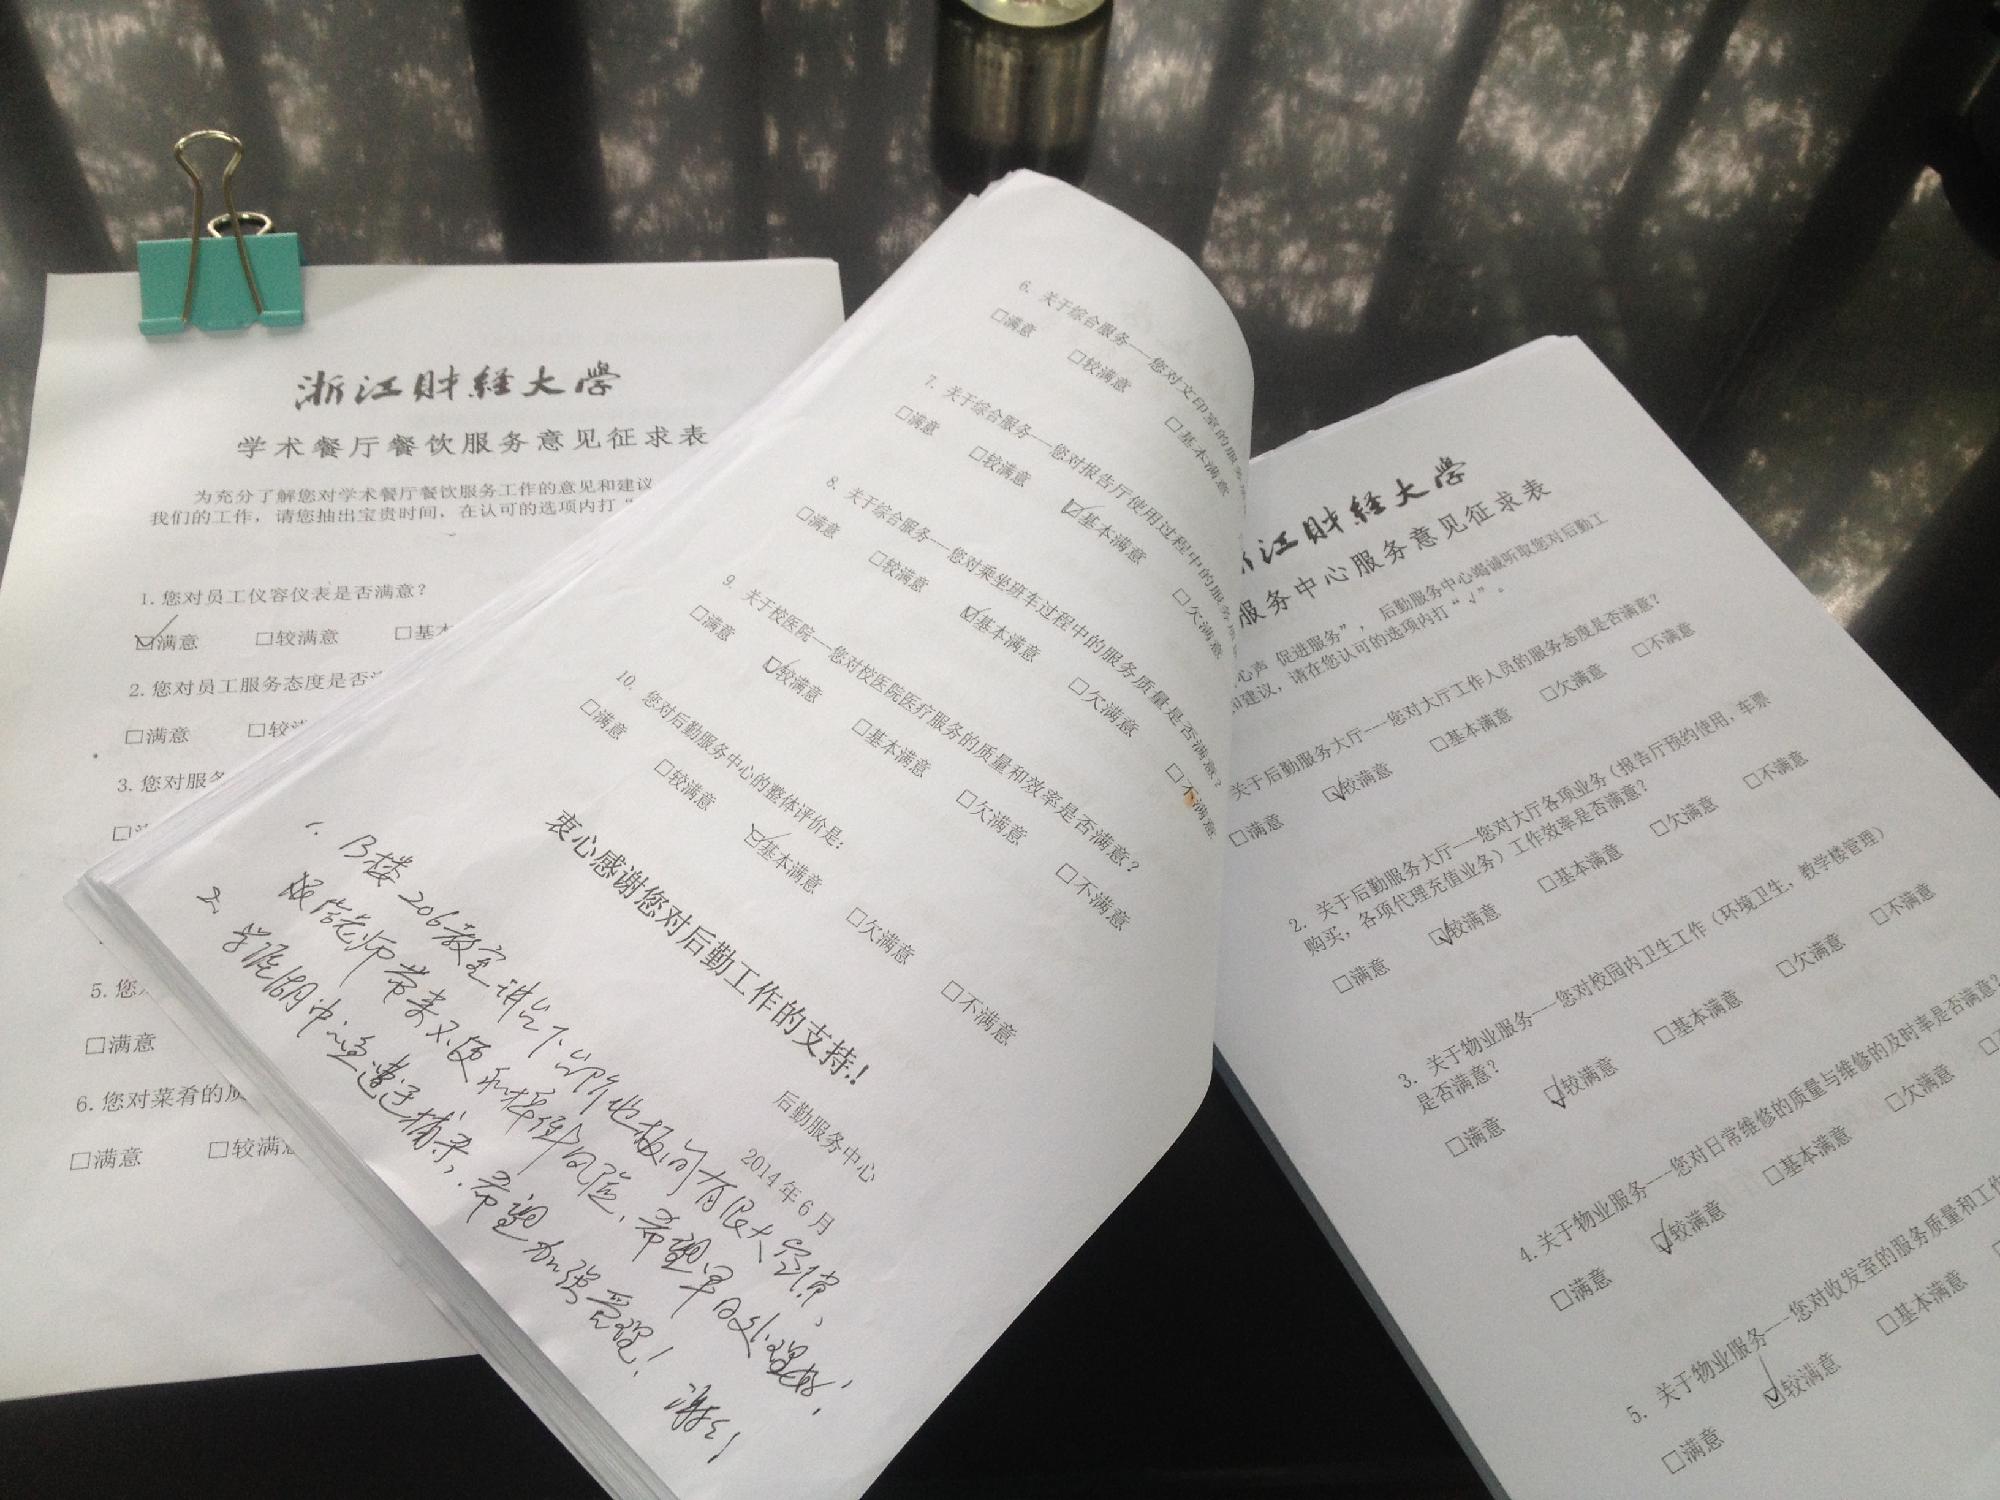 浙江财经大学
学术餐厅餐饮服务意见征求表
为充分了解您对学术餐厅餐饮服务工作的意见和建议
我们的工作，请您抽出宝贵时间，在认可的选项内打“
1. 您对员工仪容仪表是否满意？
☑满意 □较满意 □基本
2. 您对员工服务态度是否
□满意 □较
3. 您对服务
5. 您
□满意
6. 您对菜肴的质
□满意 □较满意
6. 关于综合服务——您对文印室的服务
□满意 □较满意 □基本满意
7. 关于综合服务——您对报告厅使用过程中的服务
□满意 □较满意 ☑基本满意 □欠满意
8. 关于综合服务——您对乘坐班车过程中的服务质量是否满意？
□满意 □较满意 ☑基本满意 □欠满意 □不满意
9. 关于校医院——您对校医院医疗服务的质量和效率是否满意？
□满意 ☑较满意 □基本满意 □欠满意 □不满意
10. 您对后勤服务中心的整体评价是：
□满意 □较满意 ☑基本满意 □欠满意 □不满意
衷心感谢您对后勤工作的支持！
后勤服务中心
2014年6月
1. B楼206教室讲台下 地板间有很大空隙，
老师带来不便和 风险，希望早日处理好；
2. 学 中 ，希望加强管理！
谢谢！
江财经大学
服务中心服务意见征求表
心声 促进服务”，后勤服务中心竭诚听取您对后勤工
和建议，请在您认可的选项内打“√”。
关于后勤服务大厅——您对大厅工作人员的服务态度是否满意？
□满意 ☑较满意 □基本满意 □欠满意 □不满意
2. 关于后勤服务大厅——您对大厅各项业务（报告厅预约使用，车票
购买，各项代理充值业务）工作效率是否满意？
□满意 ☑较满意 □基本满意 □欠满意 □不满意
3. 关于物业服务——您对校园内卫生工作（环境卫生，教学楼管理）
是否满意？
□满意 ☑较满意 □基本满意 □欠满意 □不满意
4. 关于物业服务——您对日常维修的质量与维修的及时率是否满意？
□满意 ☑较满意 □基本满意 □欠满意 □
5. 关于物业服务——您对收发室的服务质量和工作
□满意 ☑较满意 □基本满意